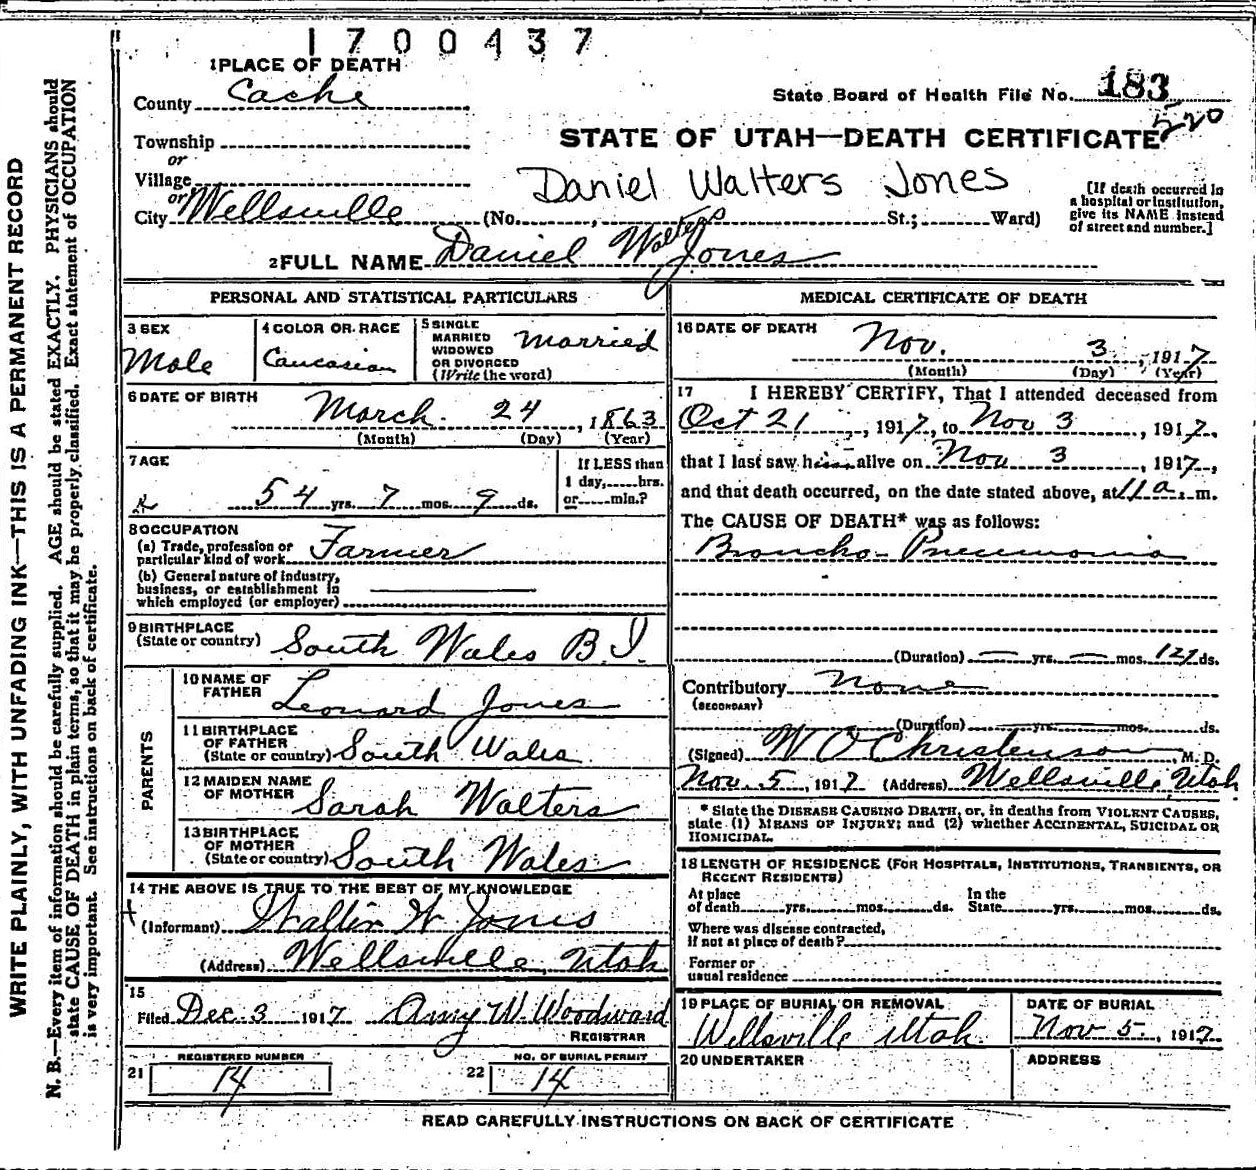 1700437
1 PLACE OF DEATH
County Cache
State Board of Health File No. 183
520
Township
or
Village
or
City Wellsville
STATE OF UTAH—DEATH CERTIFICATE
Daniel Walters Jones
(No. , St.; Ward)
[If death occurred in
a hospital or institution,
give its NAME instead
of street and number.]
2 FULL NAME Daniel W Jones
Walters
PERSONAL AND STATISTICAL PARTICULARS
3 SEX
Male
4 COLOR OR RACE
Caucasian
5 SINGLE
MARRIED
WIDOWED
OR DIVORCED
(Write the word)
Married
6 DATE OF BIRTH
March 24, 1863
(Month) (Day) (Year)
7 AGE
54 yrs. 7 mos. 9 ds.
If LESS than
1 day,......hrs.
or......min.?
8 OCCUPATION
(a) Trade, profession or
particular kind of work Farmer
(b) General nature of industry,
business, or establishment in
which employed (or employer)
9 BIRTHPLACE
(State or country) South Wales B.I.
PARENTS
10 NAME OF
FATHER Leonard Jones
11 BIRTHPLACE
OF FATHER
(State or country) South Wales
12 MAIDEN NAME
OF MOTHER Sarah Walters
13 BIRTHPLACE
OF MOTHER
(State or country) South Wales
14 THE ABOVE IS TRUE TO THE BEST OF MY KNOWLEDGE
(Informant) W Jones
(Address) Wellsville, Utah
15
Filed Dec 3 1917 Amy W. Woodward
REGISTRAR
21 REGISTERED NUMBER
14
22 NO. OF BURIAL PERMIT
14
MEDICAL CERTIFICATE OF DEATH
16 DATE OF DEATH
Nov. 3, 1917
(Month) (Day) (Year)
17 I HEREBY CERTIFY, That I attended deceased from
Oct 21, 1917, to Nov 3, 1917,
that I last saw him alive on Nov 3, 1917,
and that death occurred, on the date stated above, at 11 a. m.
The CAUSE OF DEATH* was as follows:
Broncho-Pneumonia
(Duration) — yrs. — mos. ds.
Contributory None
(SECONDARY)
(Duration) yrs. mos. ds.
(Signed) W O Christenson, M. D.
Nov. 5, 1917 (Address) Wellsville, Utah
* State the DISEASE CAUSING DEATH, or, in deaths from VIOLENT CAUSES,
state (1) MEANS OF INJURY; and (2) whether ACCIDENTAL, SUICIDAL OR
HOMICIDAL.
18 LENGTH OF RESIDENCE (FOR HOSPITALS, INSTITUTIONS, TRANSIENTS, OR
RECENT RESIDENTS)
At place In the
of death yrs. mos. ds. State yrs. mos. ds.
Where was disease contracted,
if not at place of death?
Former or
usual residence
19 PLACE OF BURIAL OR REMOVAL
Wellsville Utah
DATE OF BURIAL
Nov 5, 1917
20 UNDERTAKER
ADDRESS
READ CAREFULLY INSTRUCTIONS ON BACK OF CERTIFICATE
WRITE PLAINLY, WITH UNFADING INK—THIS IS A PERMANENT RECORD
N. B.—Every item of information should be carefully supplied. AGE should be stated EXACTLY. PHYSICIANS should
state CAUSE OF DEATH in plain terms, so that it may be properly classified. Exact statement of OCCUPATION
is very important. See instructions on back of certificate.